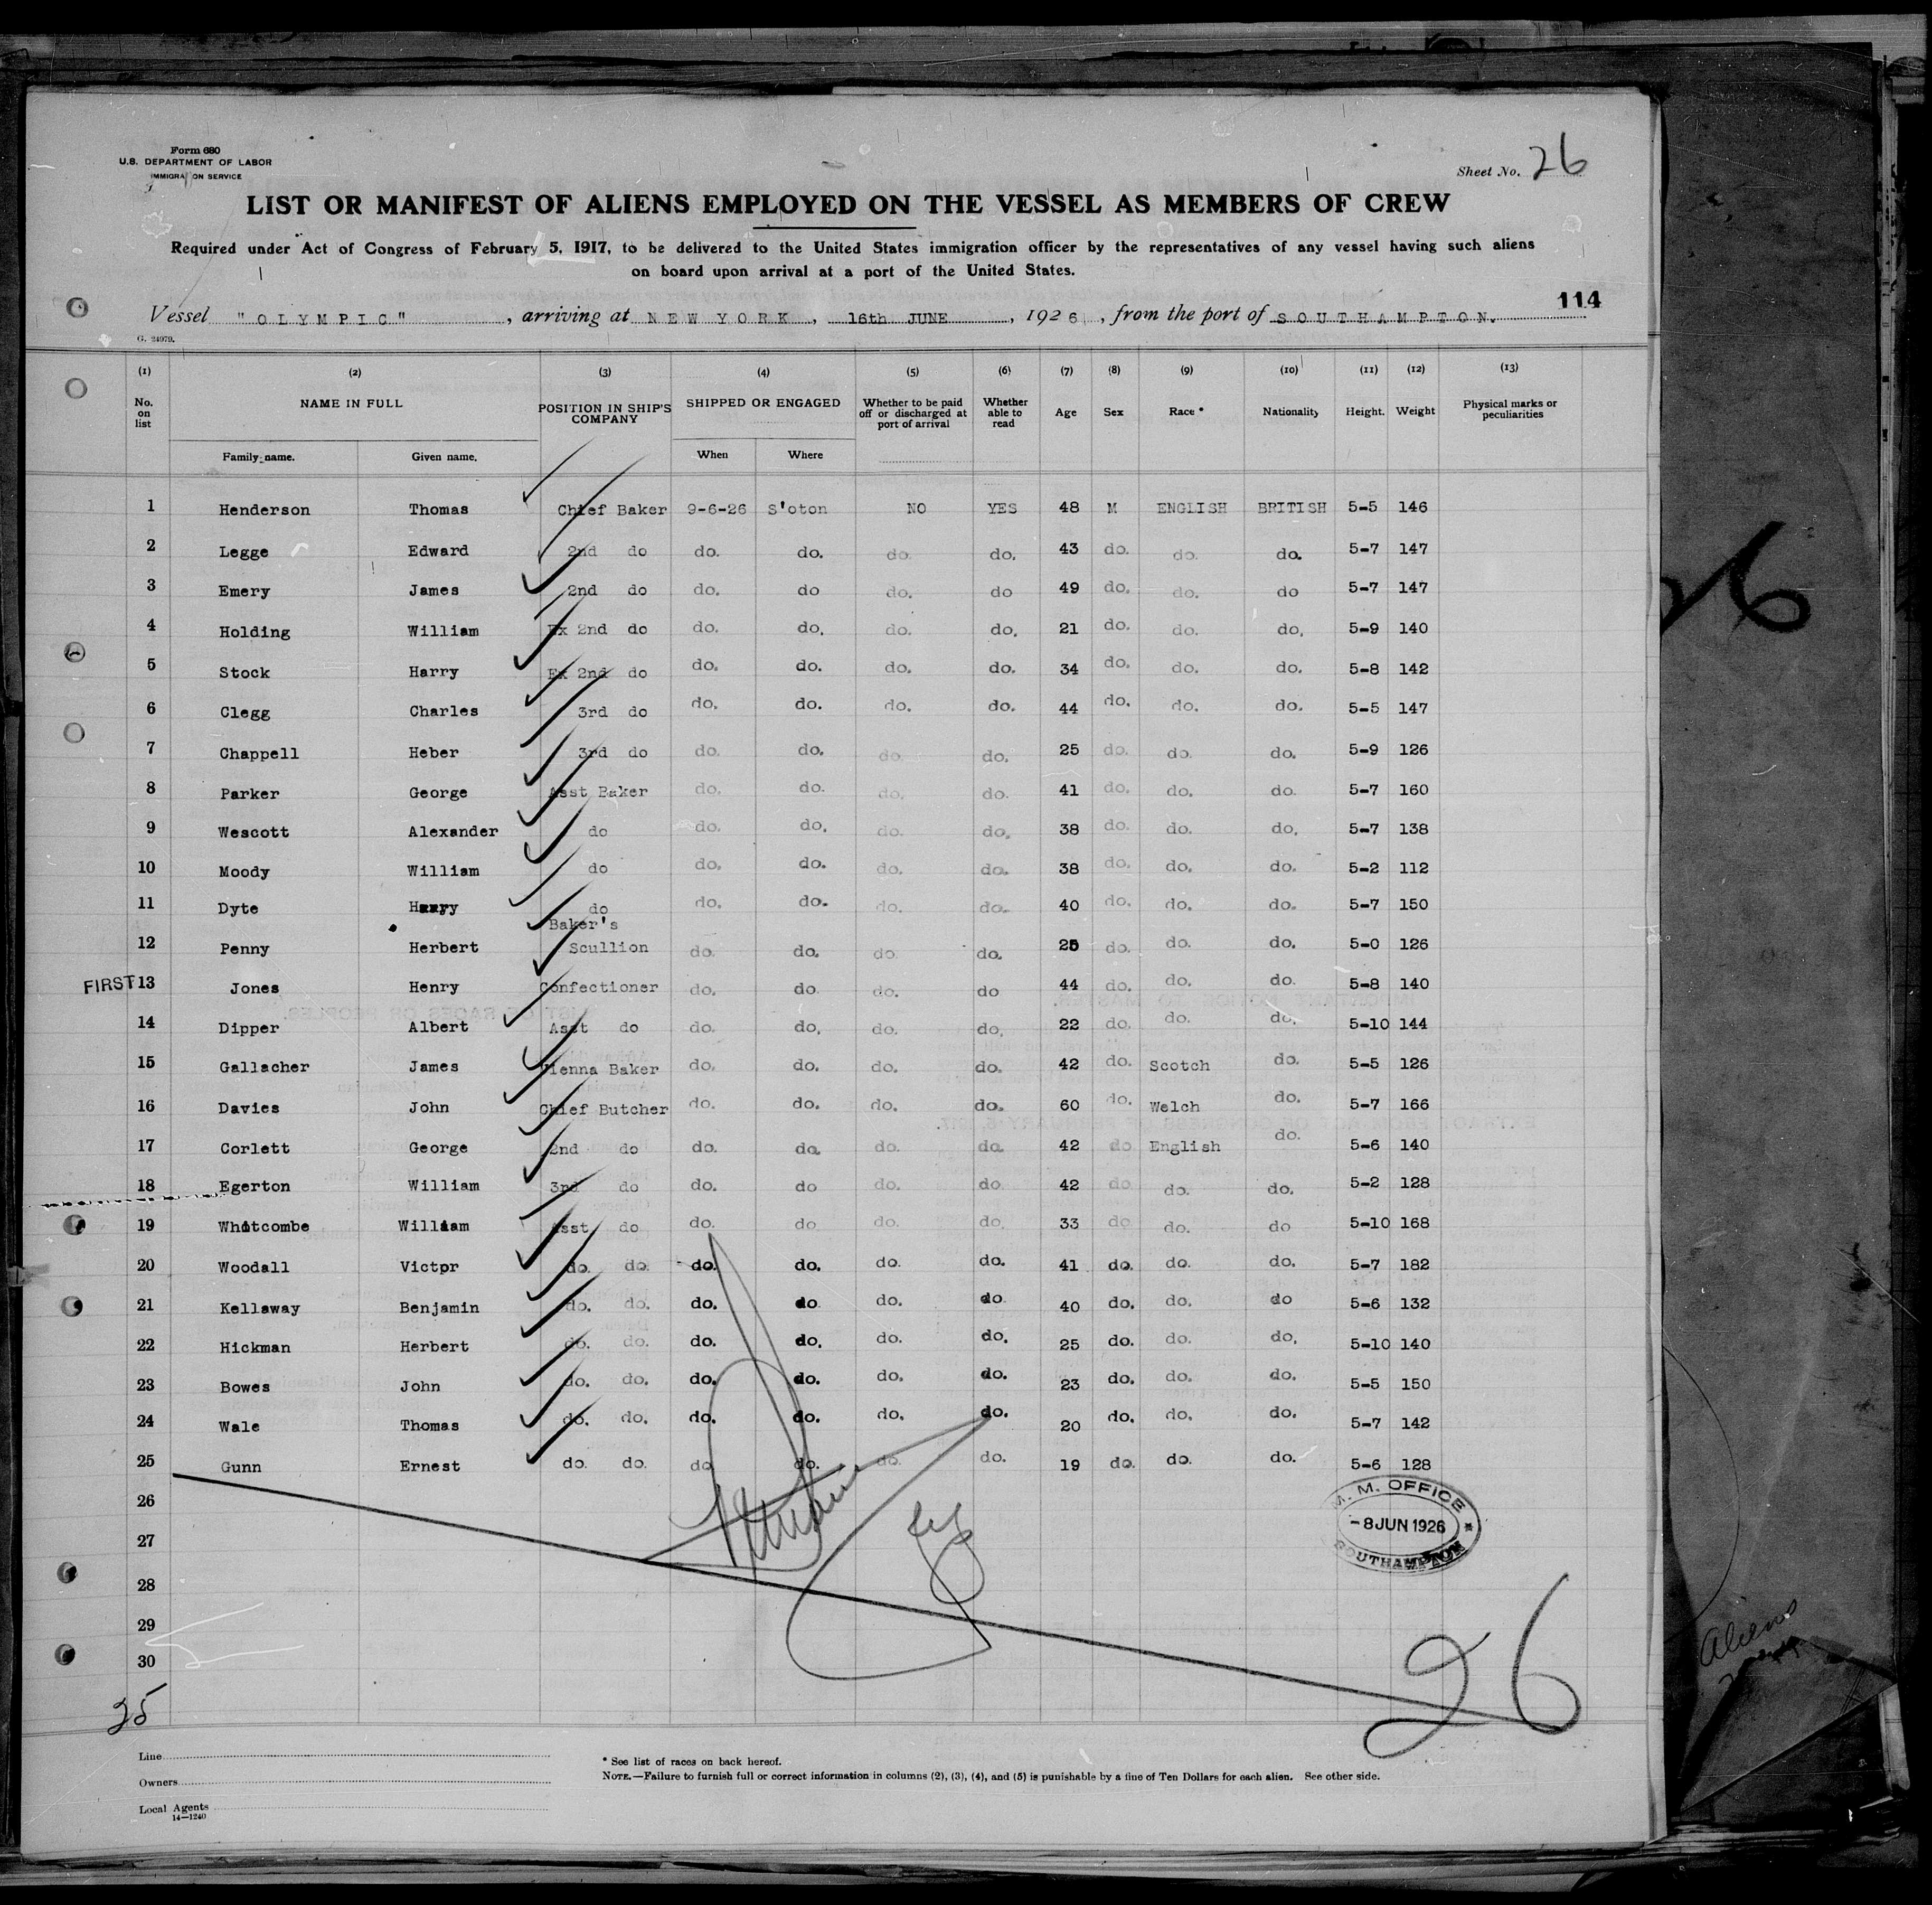 Form 680
U.S. DEPARTMENT OF LABOR
IMMIGRATION SERVICE
Sheet No. 26
LIST OR MANIFEST OF ALIENS EMPLOYED ON THE VESSEL AS MEMBERS OF CREW
Required under Act of Congress of February 5, 1917, to be delivered to the United States immigration officer by the representatives of any vessel having such aliens
on board upon arrival at a port of the United States.
114
Vessel "OLYMPIC", arriving at NEW YORK, 16th JUNE, 1926, from the port of SOUTHAMPTON.
G. 24979.
(1) (2) (3) (4) (5) (6) (7) (8) (9) (10) (11) (12) (13)
No. on list NAME IN FULL POSITION IN SHIP'S COMPANY SHIPPED OR ENGAGED Whether to be paid off or discharged at port of arrival Whether able to read Age Sex Race * Nationality Height. Weight Physical marks or peculiarities
Family name. Given name. When Where
1 Henderson Thomas Chief Baker 9-6-26 S'oton NO YES 48 M ENGLISH BRITISH 5-5 146
2 Legge Edward 2nd do do. do. do. do. 43 do. do. do. 5-7 147
3 Emery James 2nd do do. do do. do 49 do. do. do 5-7 147
4 Holding William Ex 2nd do do. do. do. do. 21 do. do. do. 5-9 140
5 Stock Harry Ex 2nd do do. do. do. do. 34 do. do. do. 5-8 142
6 Clegg Charles 3rd do do. do. do. do. 44 do. do. do. 5-5 147
7 Chappell Heber 3rd do do. do. do. do. 25 do. do. do. 5-9 126
8 Parker George Asst Baker do. do. do. do. 41 do. do. do. 5-7 160
9 Wescott Alexander do do. do. do. do. 38 do. do. do. 5-7 138
10 Moody William do do. do. do. do. 38 do. do. do. 5-2 112
11 Dyte Harry do do. do. do. do. 40 do. do. do. 5-7 150
12 Penny Herbert Baker's Scullion do. do. do. do. do. do. do. 5-0 126
FIRST 13 Jones Henry Confectioner do. do. do. do 44 do. do. do. 5-8 140
14 Dipper Albert Asst do do. do. do. do. 22 do. do. do. 5-10 144
15 Gallacher James Vienna Baker do. do. do. do. 42 do. Scotch do. 5-5 126
16 Davies John Chief Butcher do. do. do. do. 60 do. Welch do. 5-7 166
17 Corlett George 2nd do do. do. do. do. 42 do English do. 5-6 140
18 Egerton William 3rd do do. do do. do. 42 do do. do. 5-2 128
19 Whitcombe William Asst do do. do do. do. 33 do do. do 5-10 168
20 Woodall Victpr do. do. do. do. do. do. 41 do. do. do. 5-7 182
21 Kellaway Benjamin do. do. do. do. do. do. 40 do. do. do 5-6 132
22 Hickman Herbert do. do. do. do. do. do. 25 do. do. do. 5-10 140
23 Bowes John do. do. do. do. do. do. 23 do. do. do. 5-5 150
24 Wale Thomas do. do. do. do. do. do. 20 do. do. do. 5-7 142
25 Gunn Ernest do. do. do do. do. do. 19 do. do. do. 5-6 128
26
27
28
29
30
M. M. OFFICE
-8 JUN 1926 *
SOUTHAMPTON
26
25
Line
Owners
Local Agents
14—1240
* See list of races on back hereof.
NOTE.—Failure to furnish full or correct information in columns (2), (3), (4), and (5) is punishable by a fine of Ten Dollars for each alien. See other side.
26
Aliens